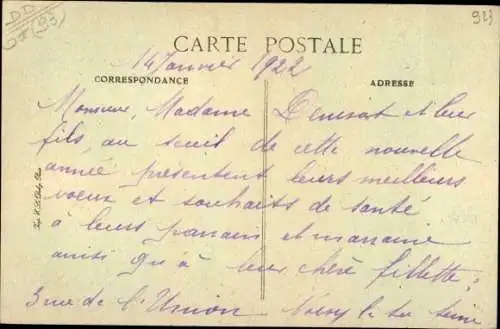 94
(93)
CARTE POSTALE
14 Janvier 1922
CORRESPONDANCE
ADRESSE
Monsieur, Madame et leur
fils, au seuil de cette nouvelle
année présentent leurs meilleurs
voeux et souhaits de santé
à leurs parrain et marraine
ainsi qu'à leur chère fillette.
3 rue de l'Union sur Seine